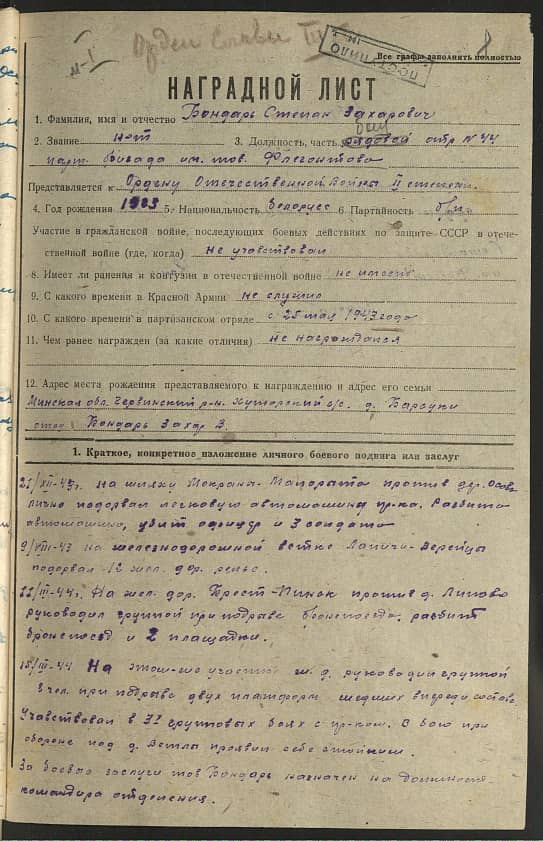 Орден Славы III
8
Все графы заполнять полностью
НАГРАДНОЙ ЛИСТ
1. Фамилия, имя и отчество Бондарь Степан Захарович
2. Звание нет 3. Должность, часть рядовой отр N 44
парт. бригада им. тов. Флегонтова
Представляется к Ордену Отечественной Войны II степени.
4. Год рождения 1923 5. Национальность Белорусс 6. Партийность б/п
Участие в гражданской войне, последующих боевых действиях по защите СССР в отече-
ственной войне (где, когда) Не учавствовал
8. Имеет ли ранения и контузии в отечественной войне не имеет
9. С какого времени в Красной Армии не служил
10. С какого времени в партизанском отряде с 25 мая 1943 года
11. Чем ранее награжден (за какие отличия) не награждался
12. Адрес места рождения представляемого к награждению и адрес его семьи
Минская обл. Червинский р-н. Хуторский с/с. д. Барсуки
отец Бондарь Захар В.
1. Краткое, конкретное изложение личного боевого подвига или заслуг
21/XII-43г. на шляху Мокрана-Малорита против д.
лично подорвал легковую автомашину пр-ка. Разбита
автомашина, убит офицер и 3 солдата
9/VIII-43 на железнодорожной ветке Лапичи-Верейцы
подорвал 12 жел. дор. рельс.
22/III-44г. На жел. дор. Брест-Пинск против д.
руководил группой при подрыве бронепоезда, разбит
бронепоезд и 2 площадки.
15/III-44 На этом-же участке ж.д. руководил группой
чел. при подрыве двух платформ шедших впереди состава
Учавствовал в групповых боях с пр-ком. В бою при
обороне под д. Ветла проявил себя стойким.
За боевые заслуги тов Бондарь назначен на должность
командира отделения.